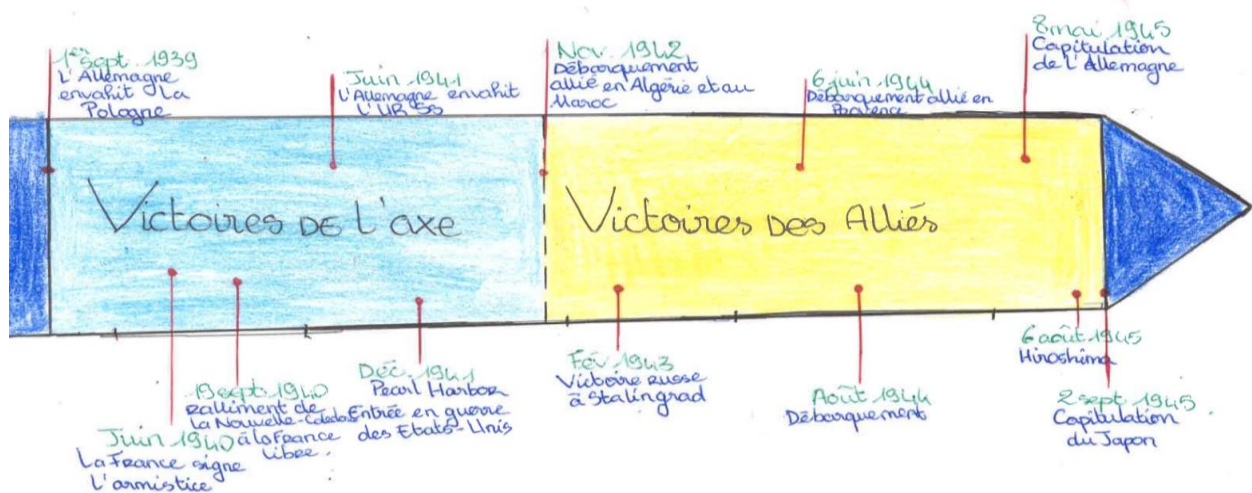 1er sept. 1939
L'Allemagne
envahit La
Pologne
Juin 1941
L'Allemagne envahit
L'URSS
Nov. 1942
Débarquement
allié en Algérie et au
Maroc
6 juin 1944
Débarquement allié en
Provence
8 mai 1945
Capitulation
de l'Allemagne
Victoires de l'axe
Victoires des Alliés
Juin 1940
La France signe
L'armistice
19 sept. 1940
Ralliment de
La Nouvelle-Calédonie
à la France
Libre.
Déc. 1941
Pearl Harbor
Entrée en guerre
des Etats-Unis
Fév 1943
Victoire russe
à Stalingrad
Août 1944
Débarquement
6 août 1945
Hiroshima
2 sept 1945
Capitulation
du Japon